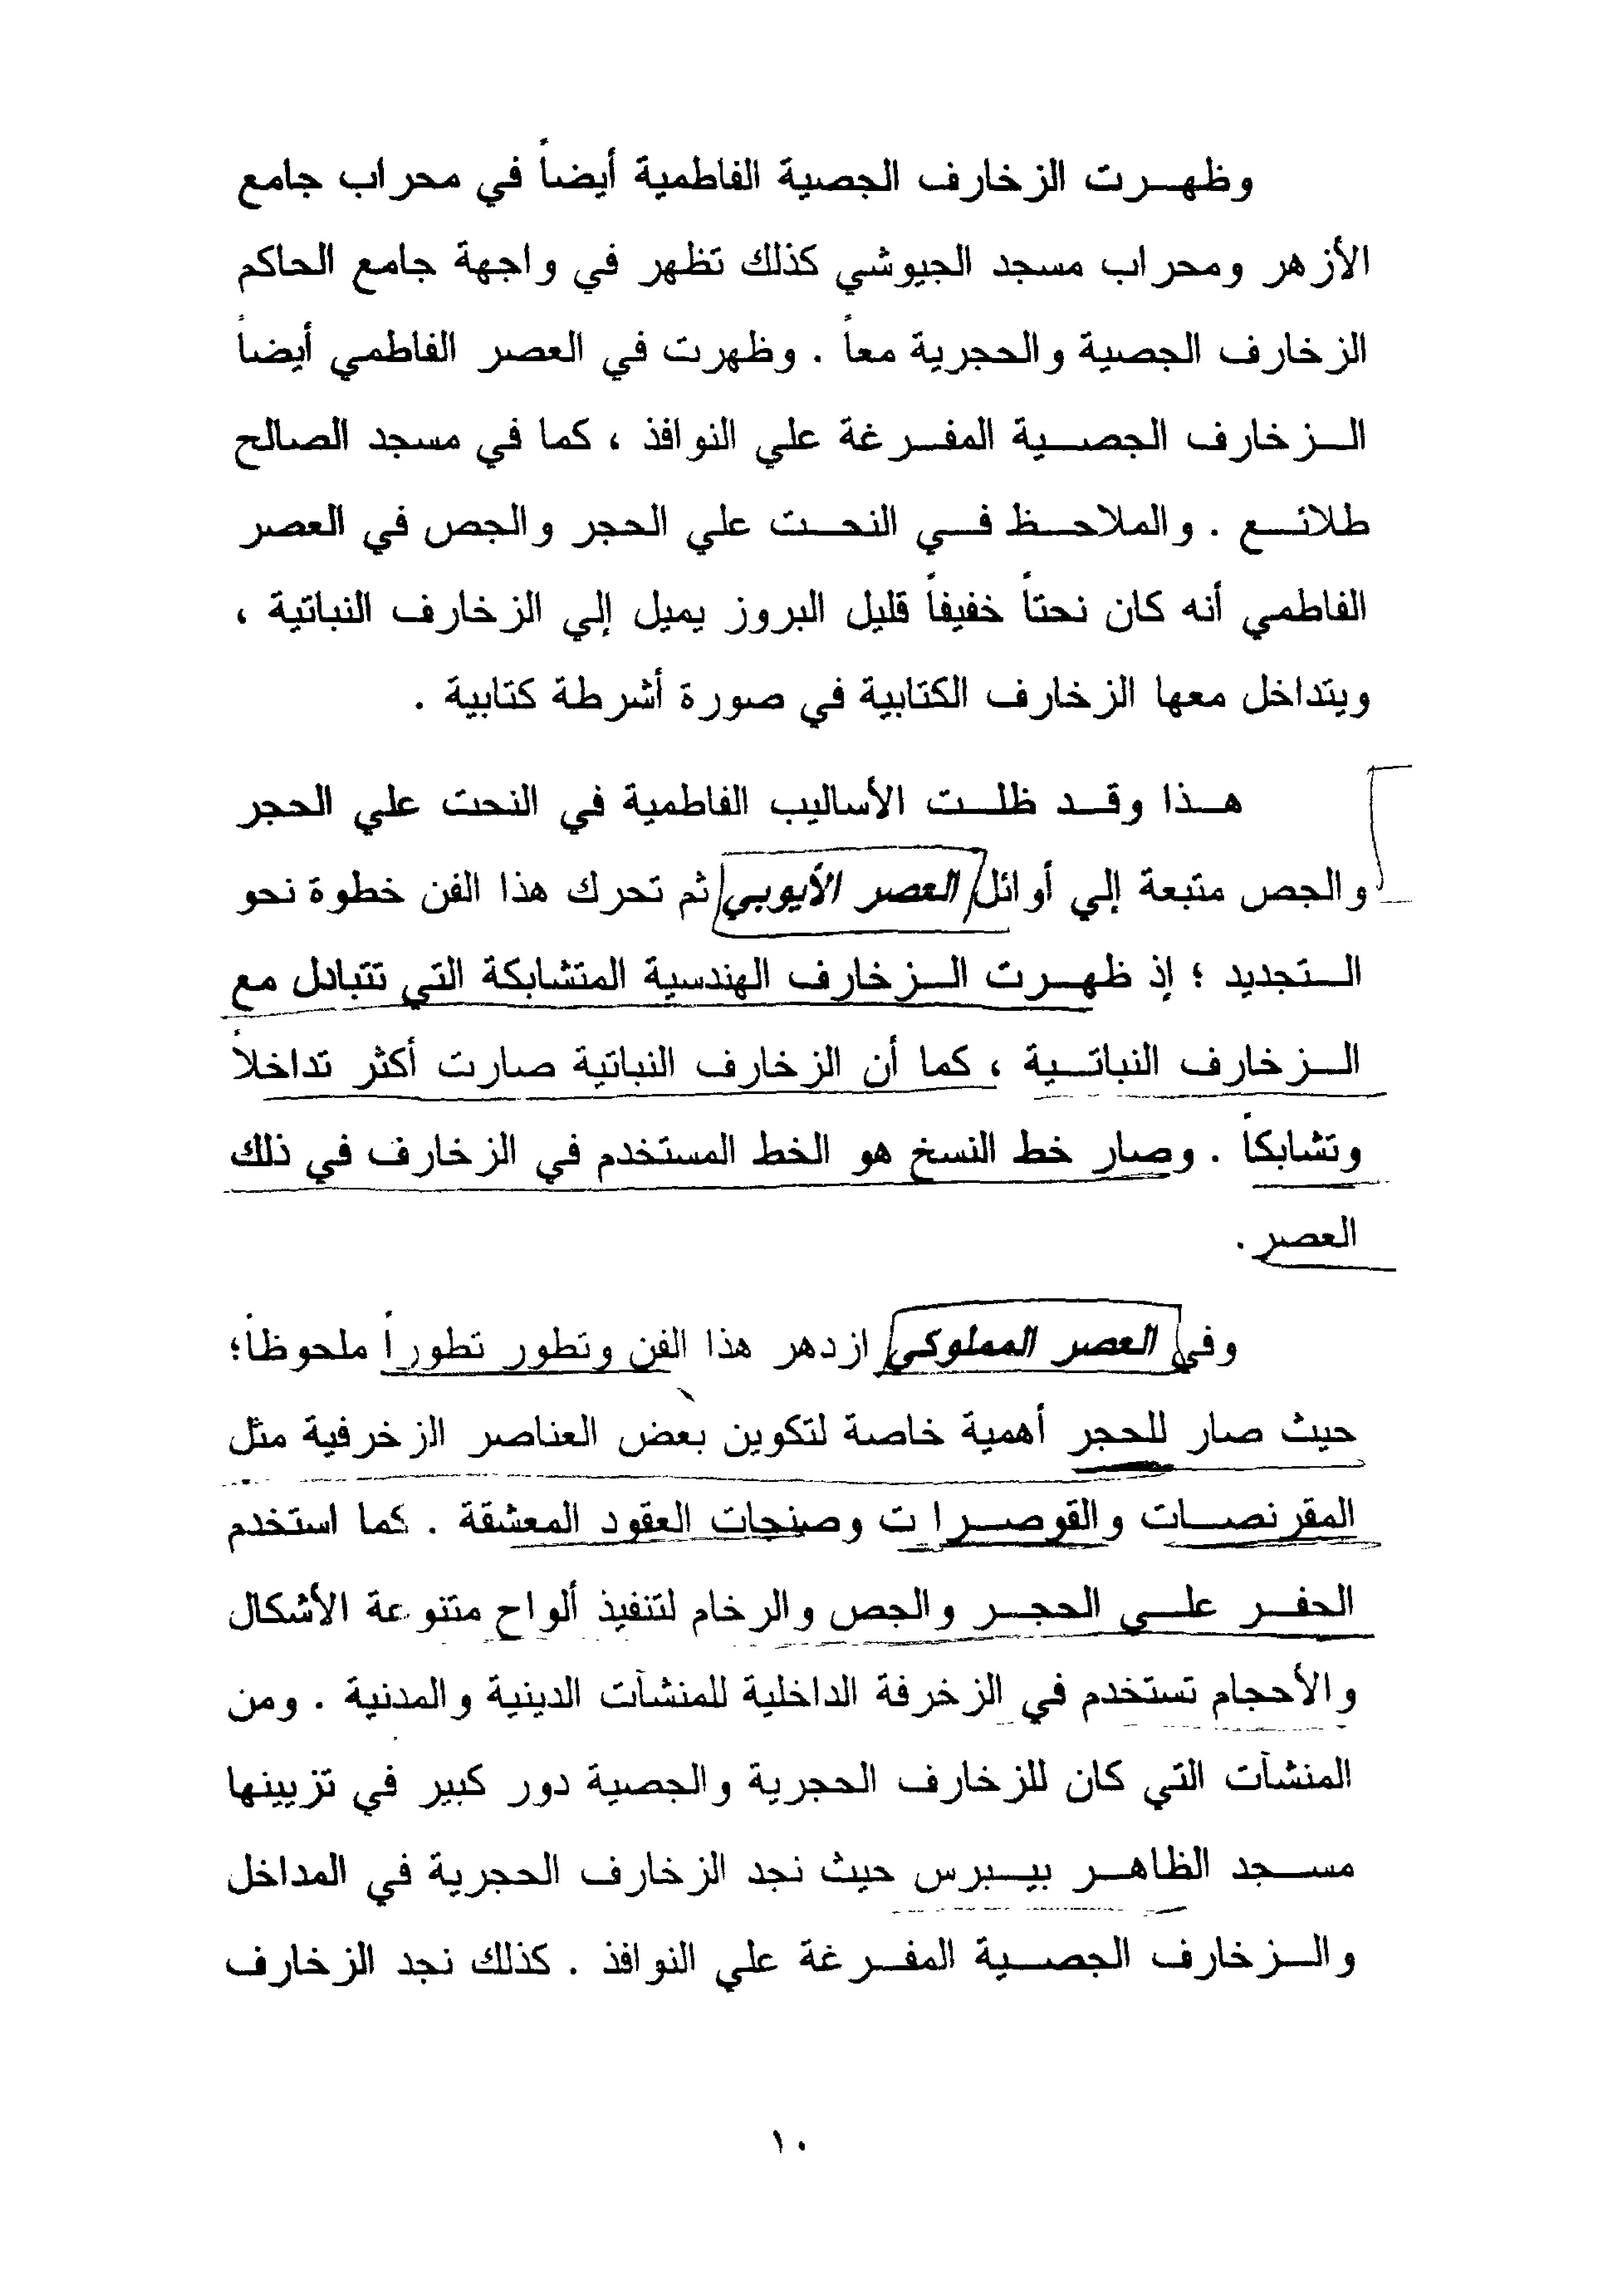 وظهرت الزخارف الجصية الفاطمية أيضاً في محراب جامع
الأزهر ومحراب مسجد الجيوشي كذلك تظهر في واجهة جامع الحاكم
الزخارف الجصية والحجرية معاً . وظهرت في العصر الفاطمي أيضاً
الزخارف الجصية المفرغة علي النوافذ ، كما في مسجد الصالح
طلائع . والملاحظ في النحت علي الحجر والجص في العصر
الفاطمي أنه كان نحتاً خفيفاً قليل البروز يميل إلي الزخارف النباتية ،
ويتداخل معها الزخارف الكتابية في صورة أشرطة كتابية .
هذا وقد ظلت الأساليب الفاطمية في النحت علي الحجر
والجص متبعة إلي أوائل العصر الأيوبي ثم تحرك هذا الفن خطوة نحو
التجديد ؛ إذ ظهرت الزخارف الهندسية المتشابكة التي تتبادل مع
الزخارف النباتية ، كما أن الزخارف النباتية صارت أكثر تداخلاً
وتشابكاً . وصار خط النسخ هو الخط المستخدم في الزخارف في ذلك
العصر .
وفي العصر المملوكي ازدهر هذا الفن وتطور تطوراً ملحوظاً؛
حيث صار للحجر أهمية خاصة لتكوين بعض العناصر الزخرفية مثل
المقرنصات والقوصرات وصنجات العقود المعشقة . كما استخدم
الحفر علي الحجر والجص والرخام لتنفيذ ألواح متنوعة الأشكال
والأحجام تستخدم في الزخرفة الداخلية للمنشآت الدينية والمدنية . ومن
المنشآت التي كان للزخارف الحجرية والجصية دور كبير في تزيينها
مسجد الظاهر بيبرس حيث نجد الزخارف الحجرية في المداخل
والزخارف الجصية المفرغة علي النوافذ . كذلك نجد الزخارف
١٠